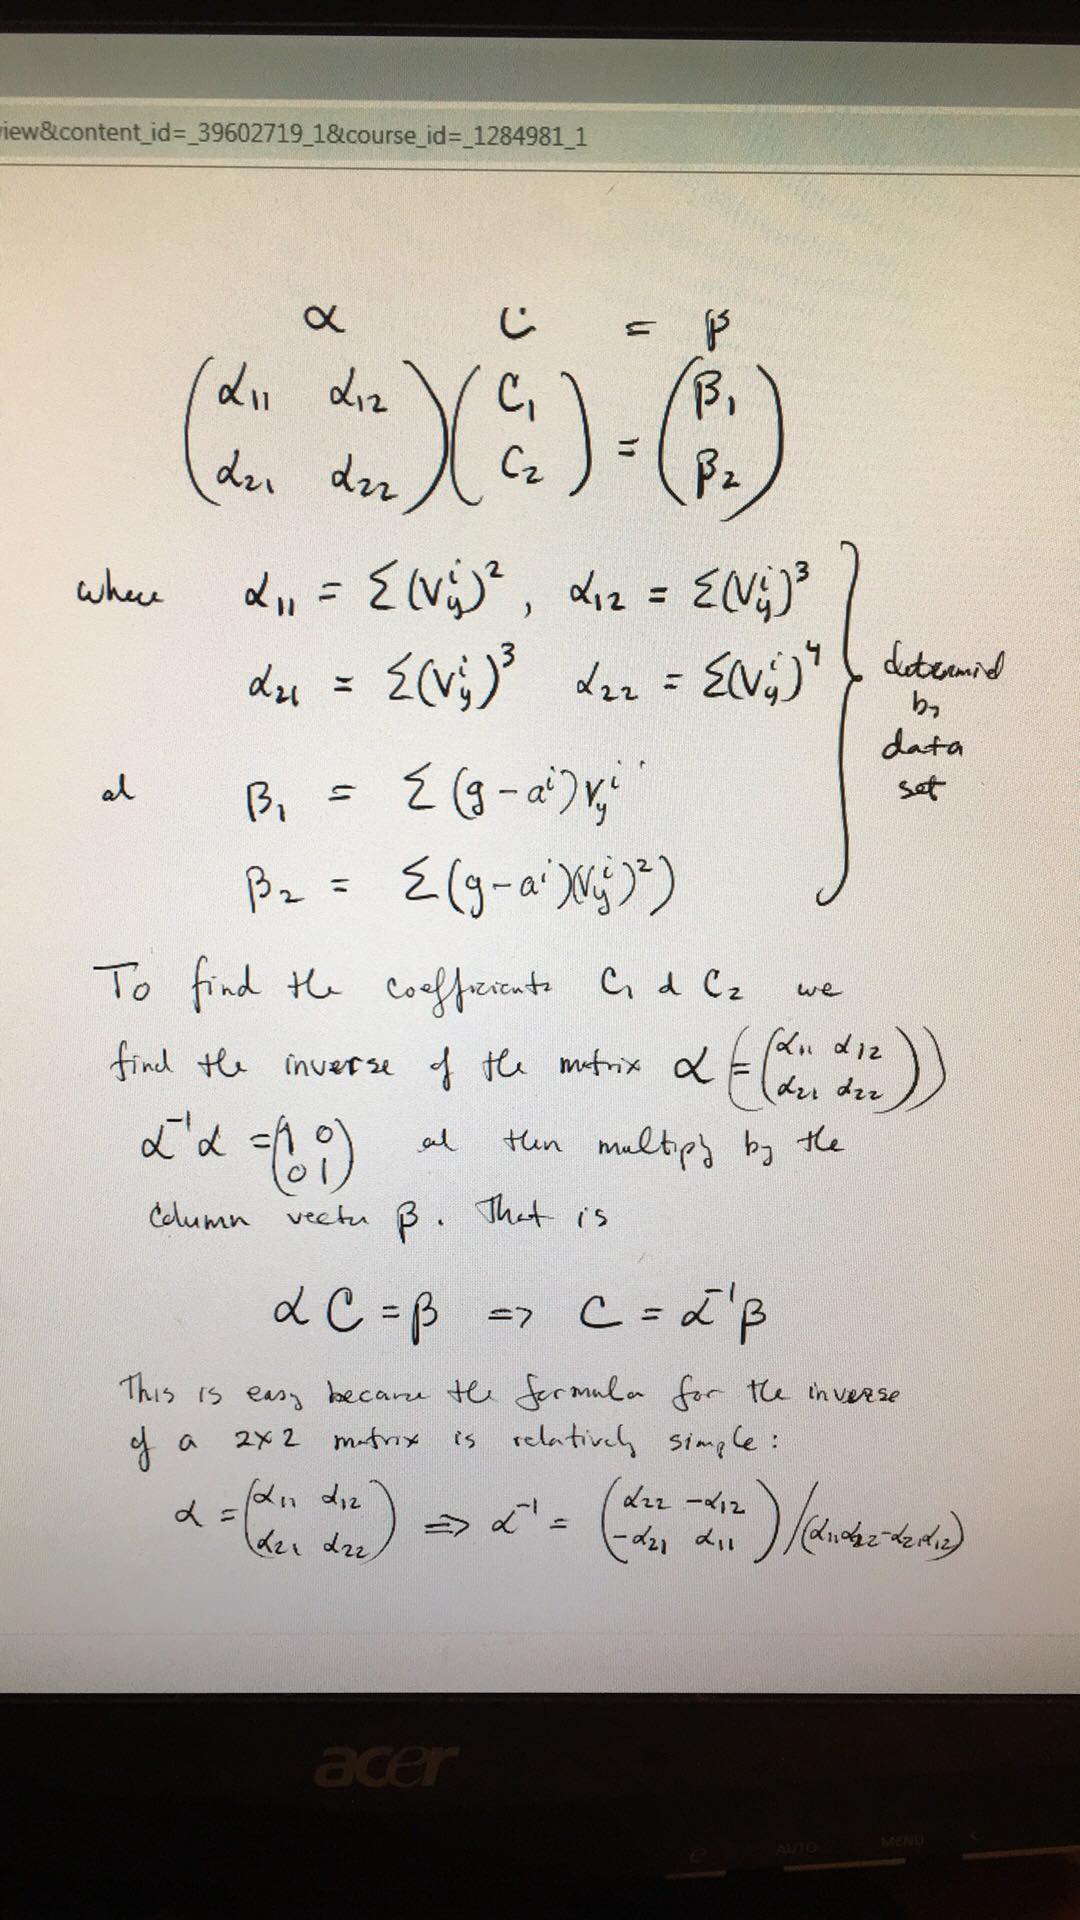 iew&content_id=_39602719_1&course_id=_1284981_1
α C = β
(α11 α12) (C1) = (β1)
(α21 α22) (C2) (β2)
where α11 = Σ(Vyⁱ)², α12 = Σ(Vyⁱ)³
α21 = Σ(Vyⁱ)³ α22 = Σ(Vyⁱ)⁴
determined
by
data
set
ad β1 = Σ(g-aⁱ)Vyⁱ
β2 = Σ(g-aⁱ)(Vyⁱ)²)
To find the coefficients C1 d C2 we
find the inverse of the matrix α (= (α11 α12
α21 α22))
α⁻¹α = (1 0
0 1) ad then multiply by the
column vector β. That is
αC = β => C = α⁻¹β
This is easy because the formula for the inverse
of a 2x2 matrix is relatively simple:
α = (α11 α12) => α⁻¹ = (α22 -α12)
(α21 α22) (-α21 α11) /(α11α22-α21α12)
acer
e AUTO MENU <